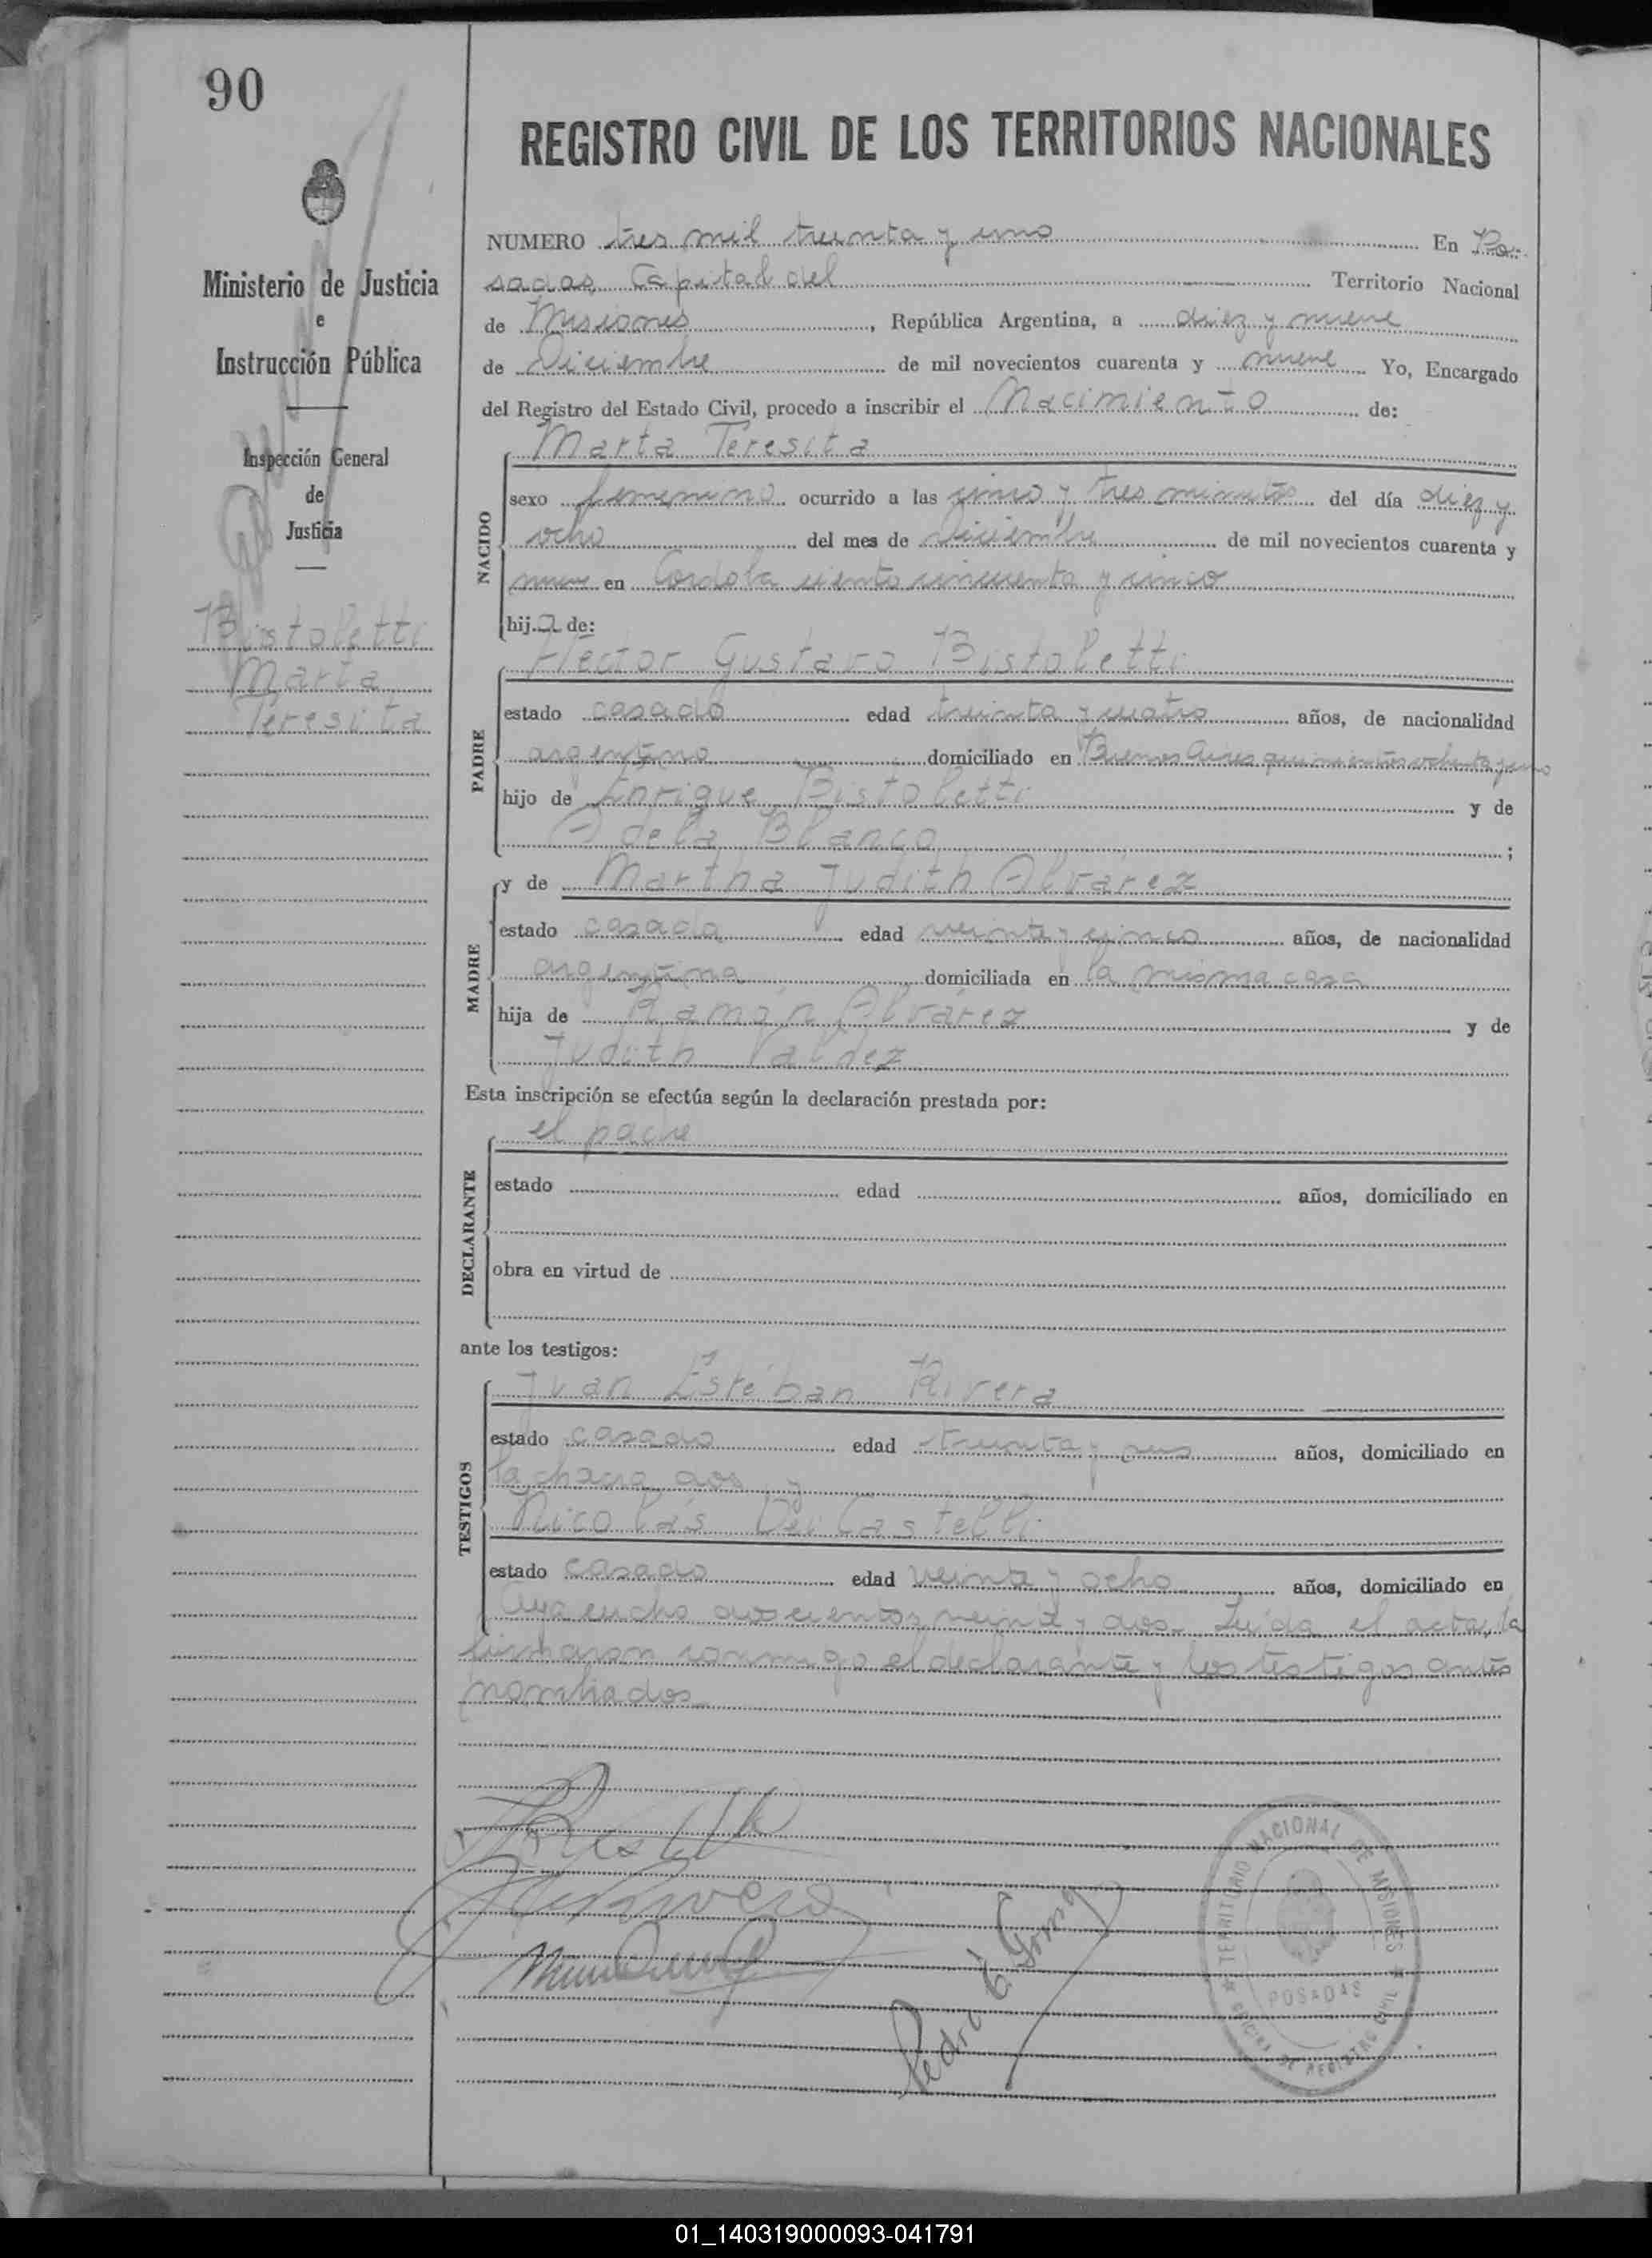 90
REGISTRO CIVIL DE LOS TERRITORIOS NACIONALES
Ministerio de Justicia
e
Instrucción Pública
Inspección General
de
Justicia
Bistoletti
Marta
Teresita
NUMERO tres mil treinta y uno En Po-
sadas Capital del Territorio Nacional
de Misiones, República Argentina, a diez y nueve
de Diciembre de mil novecientos cuarenta y nueve Yo, Encargado
del Registro del Estado Civil, procedo a inscribir el Nacimiento de:
Marta Teresita
NACIDO
sexo femenino ocurrido a las cinco y tres minutos del día diez y
ocho del mes de Diciembre de mil novecientos cuarenta y
nueve en Cordoba ciento cincuenta y cinco
hija de:
Héctor Gustavo Bistoletti
PADRE
estado casado edad treinta y cuatro años, de nacionalidad
argentino domiciliado en Buenos Aires quinientos ochenta y uno
hijo de Enrique Bistoletti y de
Adela Blanco;
y de Martha Judith Alvárez
MADRE
estado casada edad veinte y cinco años, de nacionalidad
argentina domiciliada en la misma casa
hija de Ramón Alvárez y de
Judith Valdez
Esta inscripción se efectúa según la declaración prestada por:
el padre
DECLARANTE
estado edad años, domiciliado en
obra en virtud de
ante los testigos:
Juan Estéban Rivera
TESTIGOS
estado casado edad treinta y seis años, domiciliado en
la chacra dos y
Nicolás Dei Castelli
estado casado edad veinte y ocho años, domiciliado en
Ayacucho doscientos veinte y dos. Leída el acta, la
firmaron conmigo el declarante y los testigos antes
nombrados.
Pedro E.
TERRITORIO NACIONAL DE MISIONES
POSADAS
OFICINA DE REGISTRO CIVIL
01_140319000093-041791